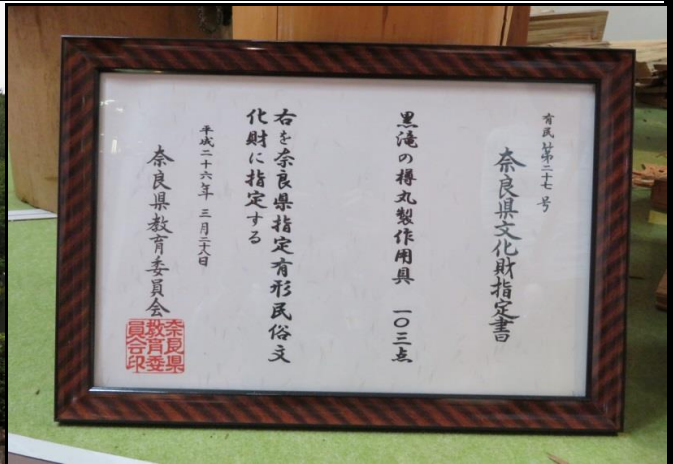 有民第二十七号
奈良県文化財指定書
黒滝の樽丸製作用具 一〇三点
右を奈良県指定有形民俗文
化財に指定する
平成二十六年三月二十八日
奈良県教育委員会
奈良県
教育委
員会印